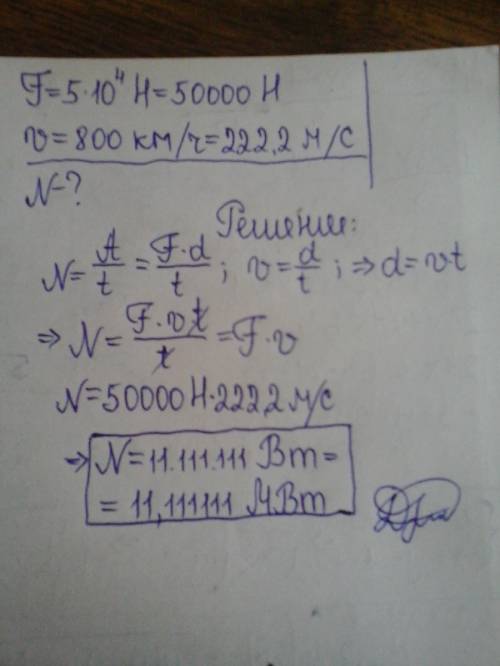 F=5·10⁴ Н=50000 Н
v=800 км/ч=222,2 м/с
N-?
Решение:
N=A/t=F·d/t; v=d/t; ⇒d=vt
⇒N=F·vt/t=F·v
N=50000Н·222,2м/с
⇒N=11.111.111 Вт=
=11,111111 МВт